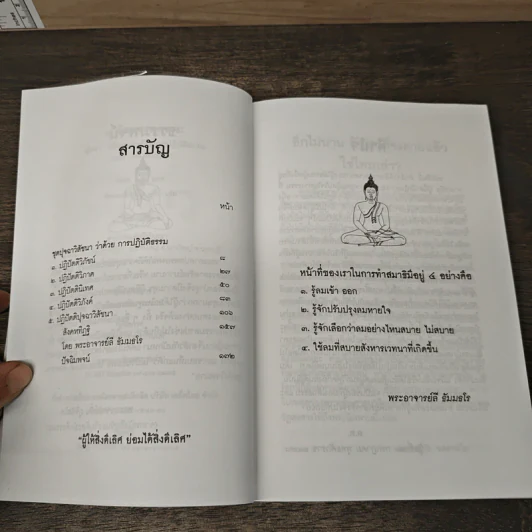 สารบัญ
หน้า
ชุดปุจฉาวิสัชนา ว่าด้วย การปฏิบัติธรรม
๑. ปฏิปัตติวิภัชน์ ๘
๒. ปฏิปัตติวิภาค ๒๓
๓. ปฏิปัตตินิเทศ ๕๐
๔. ปฏิปัตติวิภังค์ ๘๓
๕. ปฏิปัตติปุจฉาวิสัชนา ๑๐๖
สังคหทิฏฐิ ๑๕๓
โดย พระอาจารย์ลี ธัมมธโร
ปัจฉิมพจน์ ๑๓๒
"ผู้ให้สิ่งดีเลิศ ย่อมได้สิ่งดีเลิศ"
หน้าที่ของเราในการทำสมาธิมีอยู่ ๔ อย่างคือ
๑. รู้ลมเข้า ออก
๒. รู้จักปรับปรุงลมหายใจ
๓. รู้จักเลือกว่าลมอย่างไหนสบาย ไม่สบาย
๔. ใช้ลมที่สบายสังหารเวทนาที่เกิดขึ้น
พระอาจารย์ลี ธัมมธโร